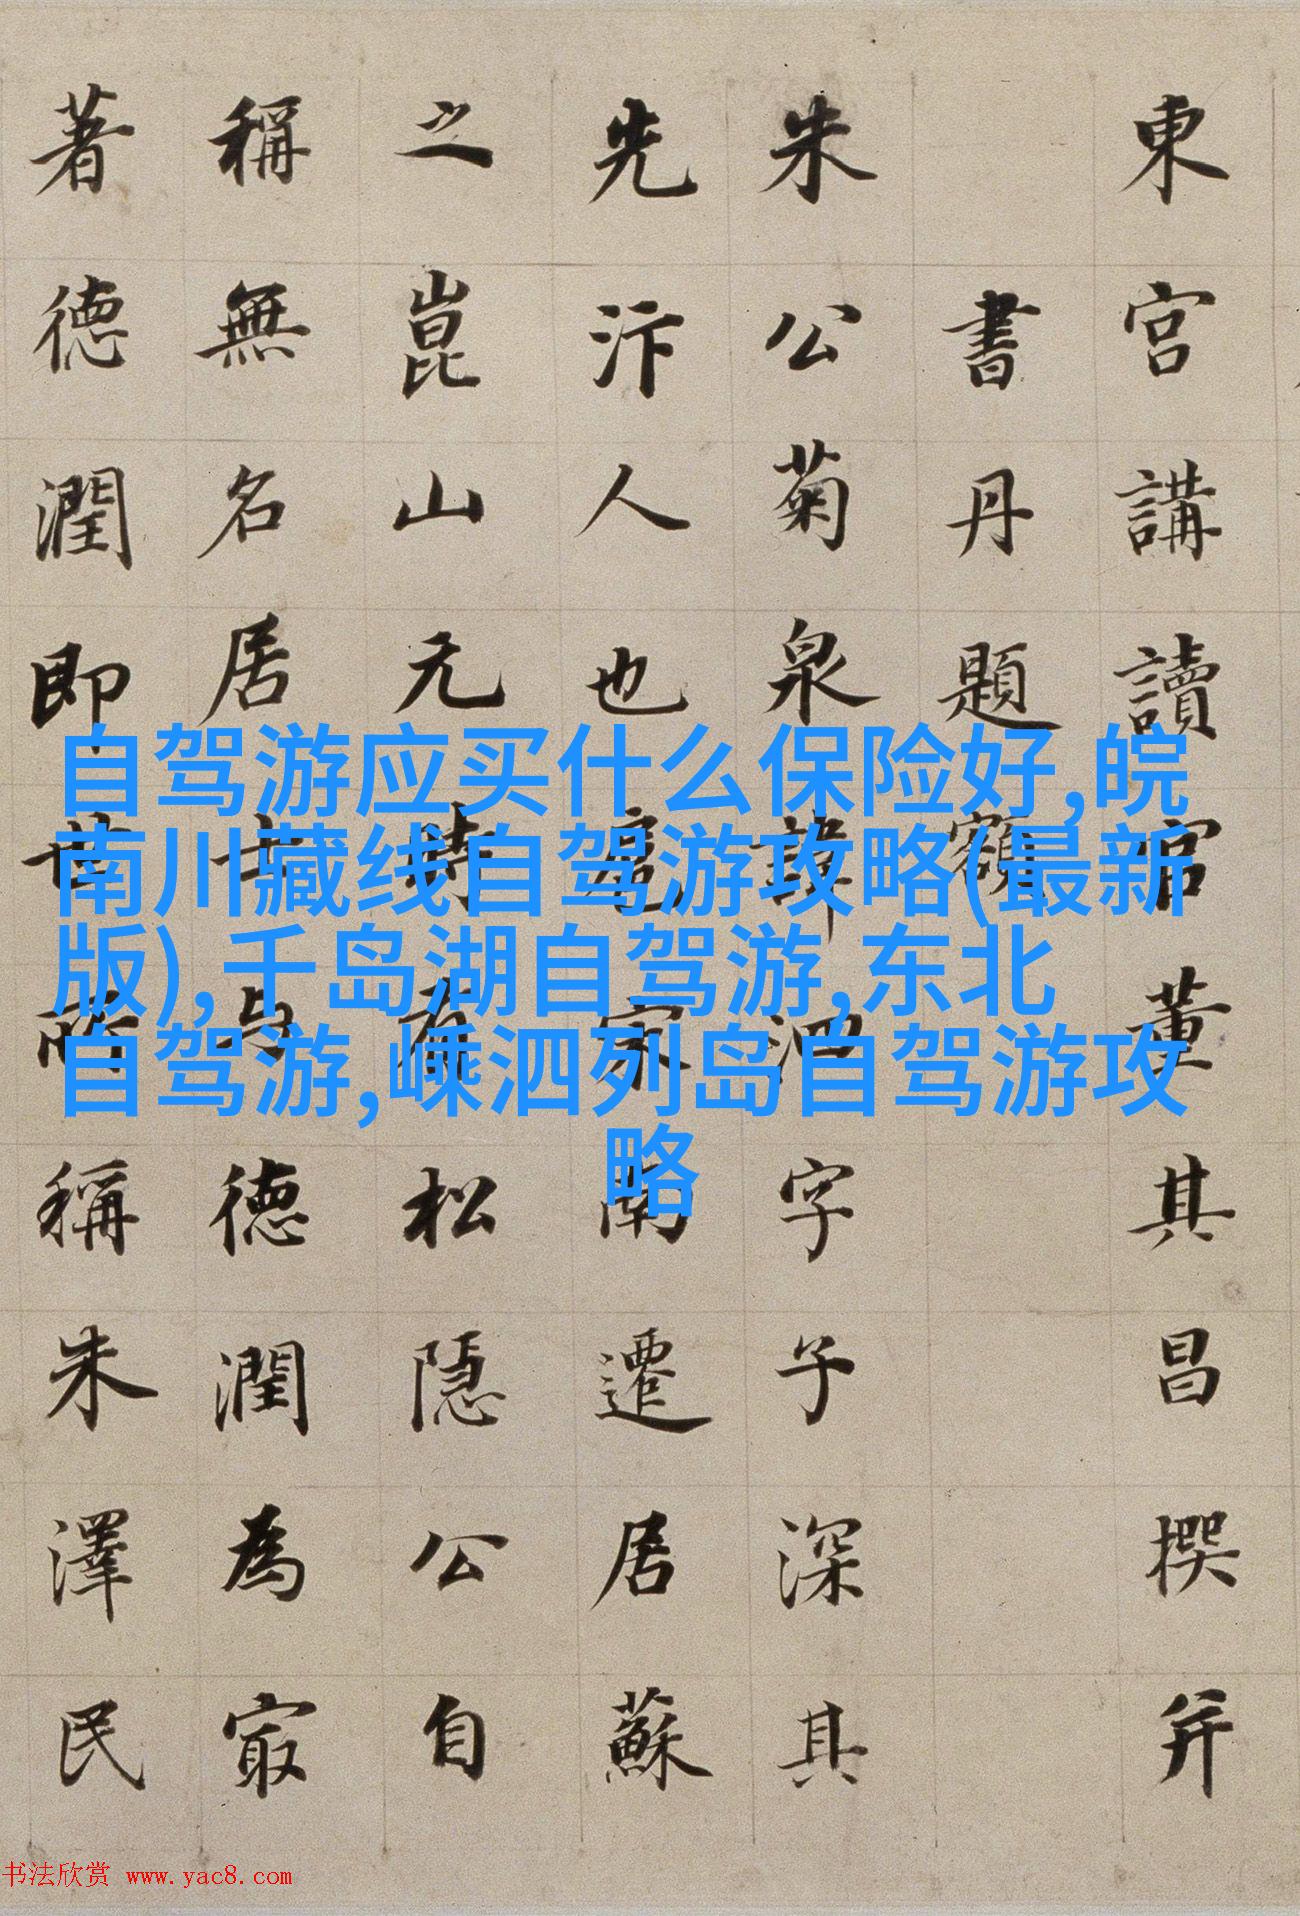 東宮講讀官董其昌撰并
書丹題額
朱公菊泉諱泗字子深其
先汴人也扈宋南遷居蘇
之崑山元時有松隱公自
稱無名居士與德潤為㝡
著德潤即世所稱朱澤民
自驾游应买什么保险好,皖
南川藏线自驾游攻略(最新
版),千岛湖自驾游,东北
自驾游,嵊泗列岛自驾游攻
略
书法欣赏 www.yac8.com